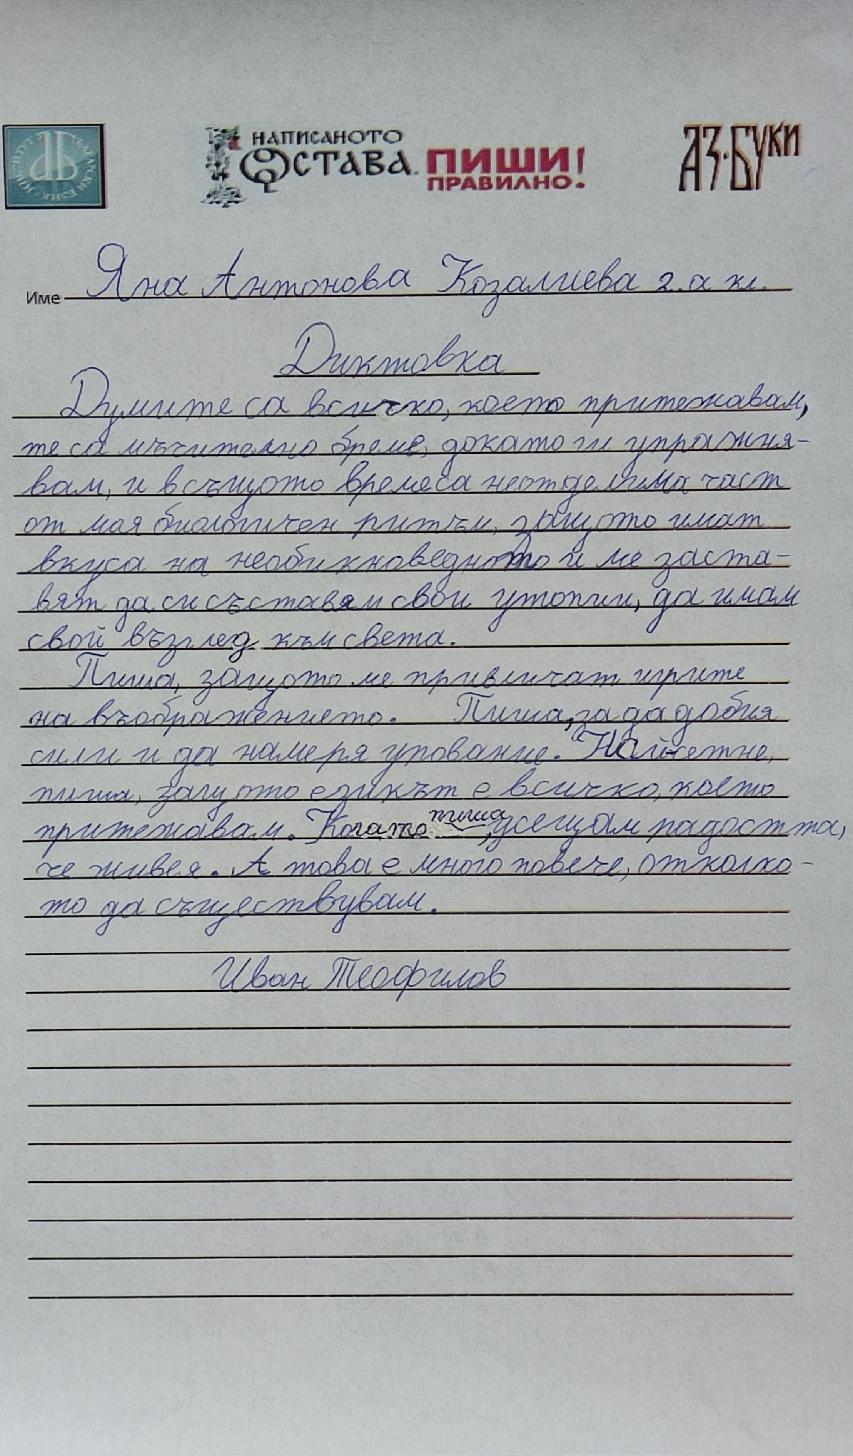 НАПИСАНОТО
ОСТАВА. ПИШИ
ПРАВИЛНО!
АЗ·БУКИ
Име Яна Антонова Козалиева 2. а кл.
Диктовка
Думите са всичко, което притежавам,
те са мъчително бреме, докато ги упражня-
вам, и в същото време са неотделима част
от моя биологичен ритъм, защото имат
вкуса на необикноведното и ме заста-
вят да си съставям свои утопии, да имам
свой възглед към света.
Пиша, защото ме привличат игрите
на въображението. Пиша, за да добия
сили и да намеря упование. Найсетне,
пиша, защото езикът е всичко, което
притежавам. Когато пиша, усещам радостта,
че живея. А това е много повече, отколко-
то да съществувам.
Иван Теофилов